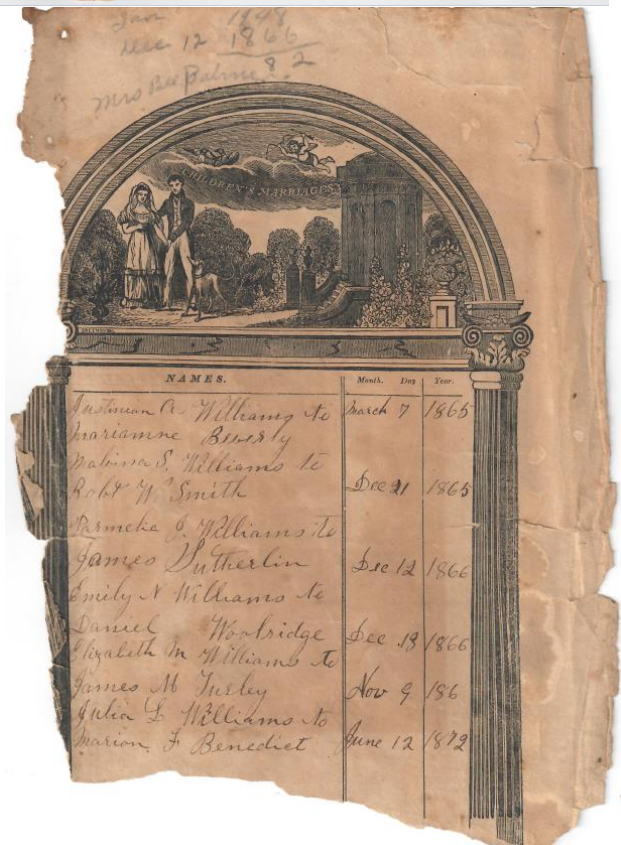 Jan 1848
Dec 12 1866
82
Mrs
CHILDREN'S MARRIAGES
NAMES. Month. Day Year.
Justinian A. Williams to March 7 1865
Mariamne Beverly
Malvina S. Williams to
Robt W. Smith Dec 21 1865
Parmelie J. Williams to
James Sutherlin Dec 12 1866
Emily N Williams to
Daniel Woolridge Dec 18 1866
Elizabeth M Williams to
James M Turley Nov 9 186
Julia L Williams to
Marion F Benedict June 12 1872